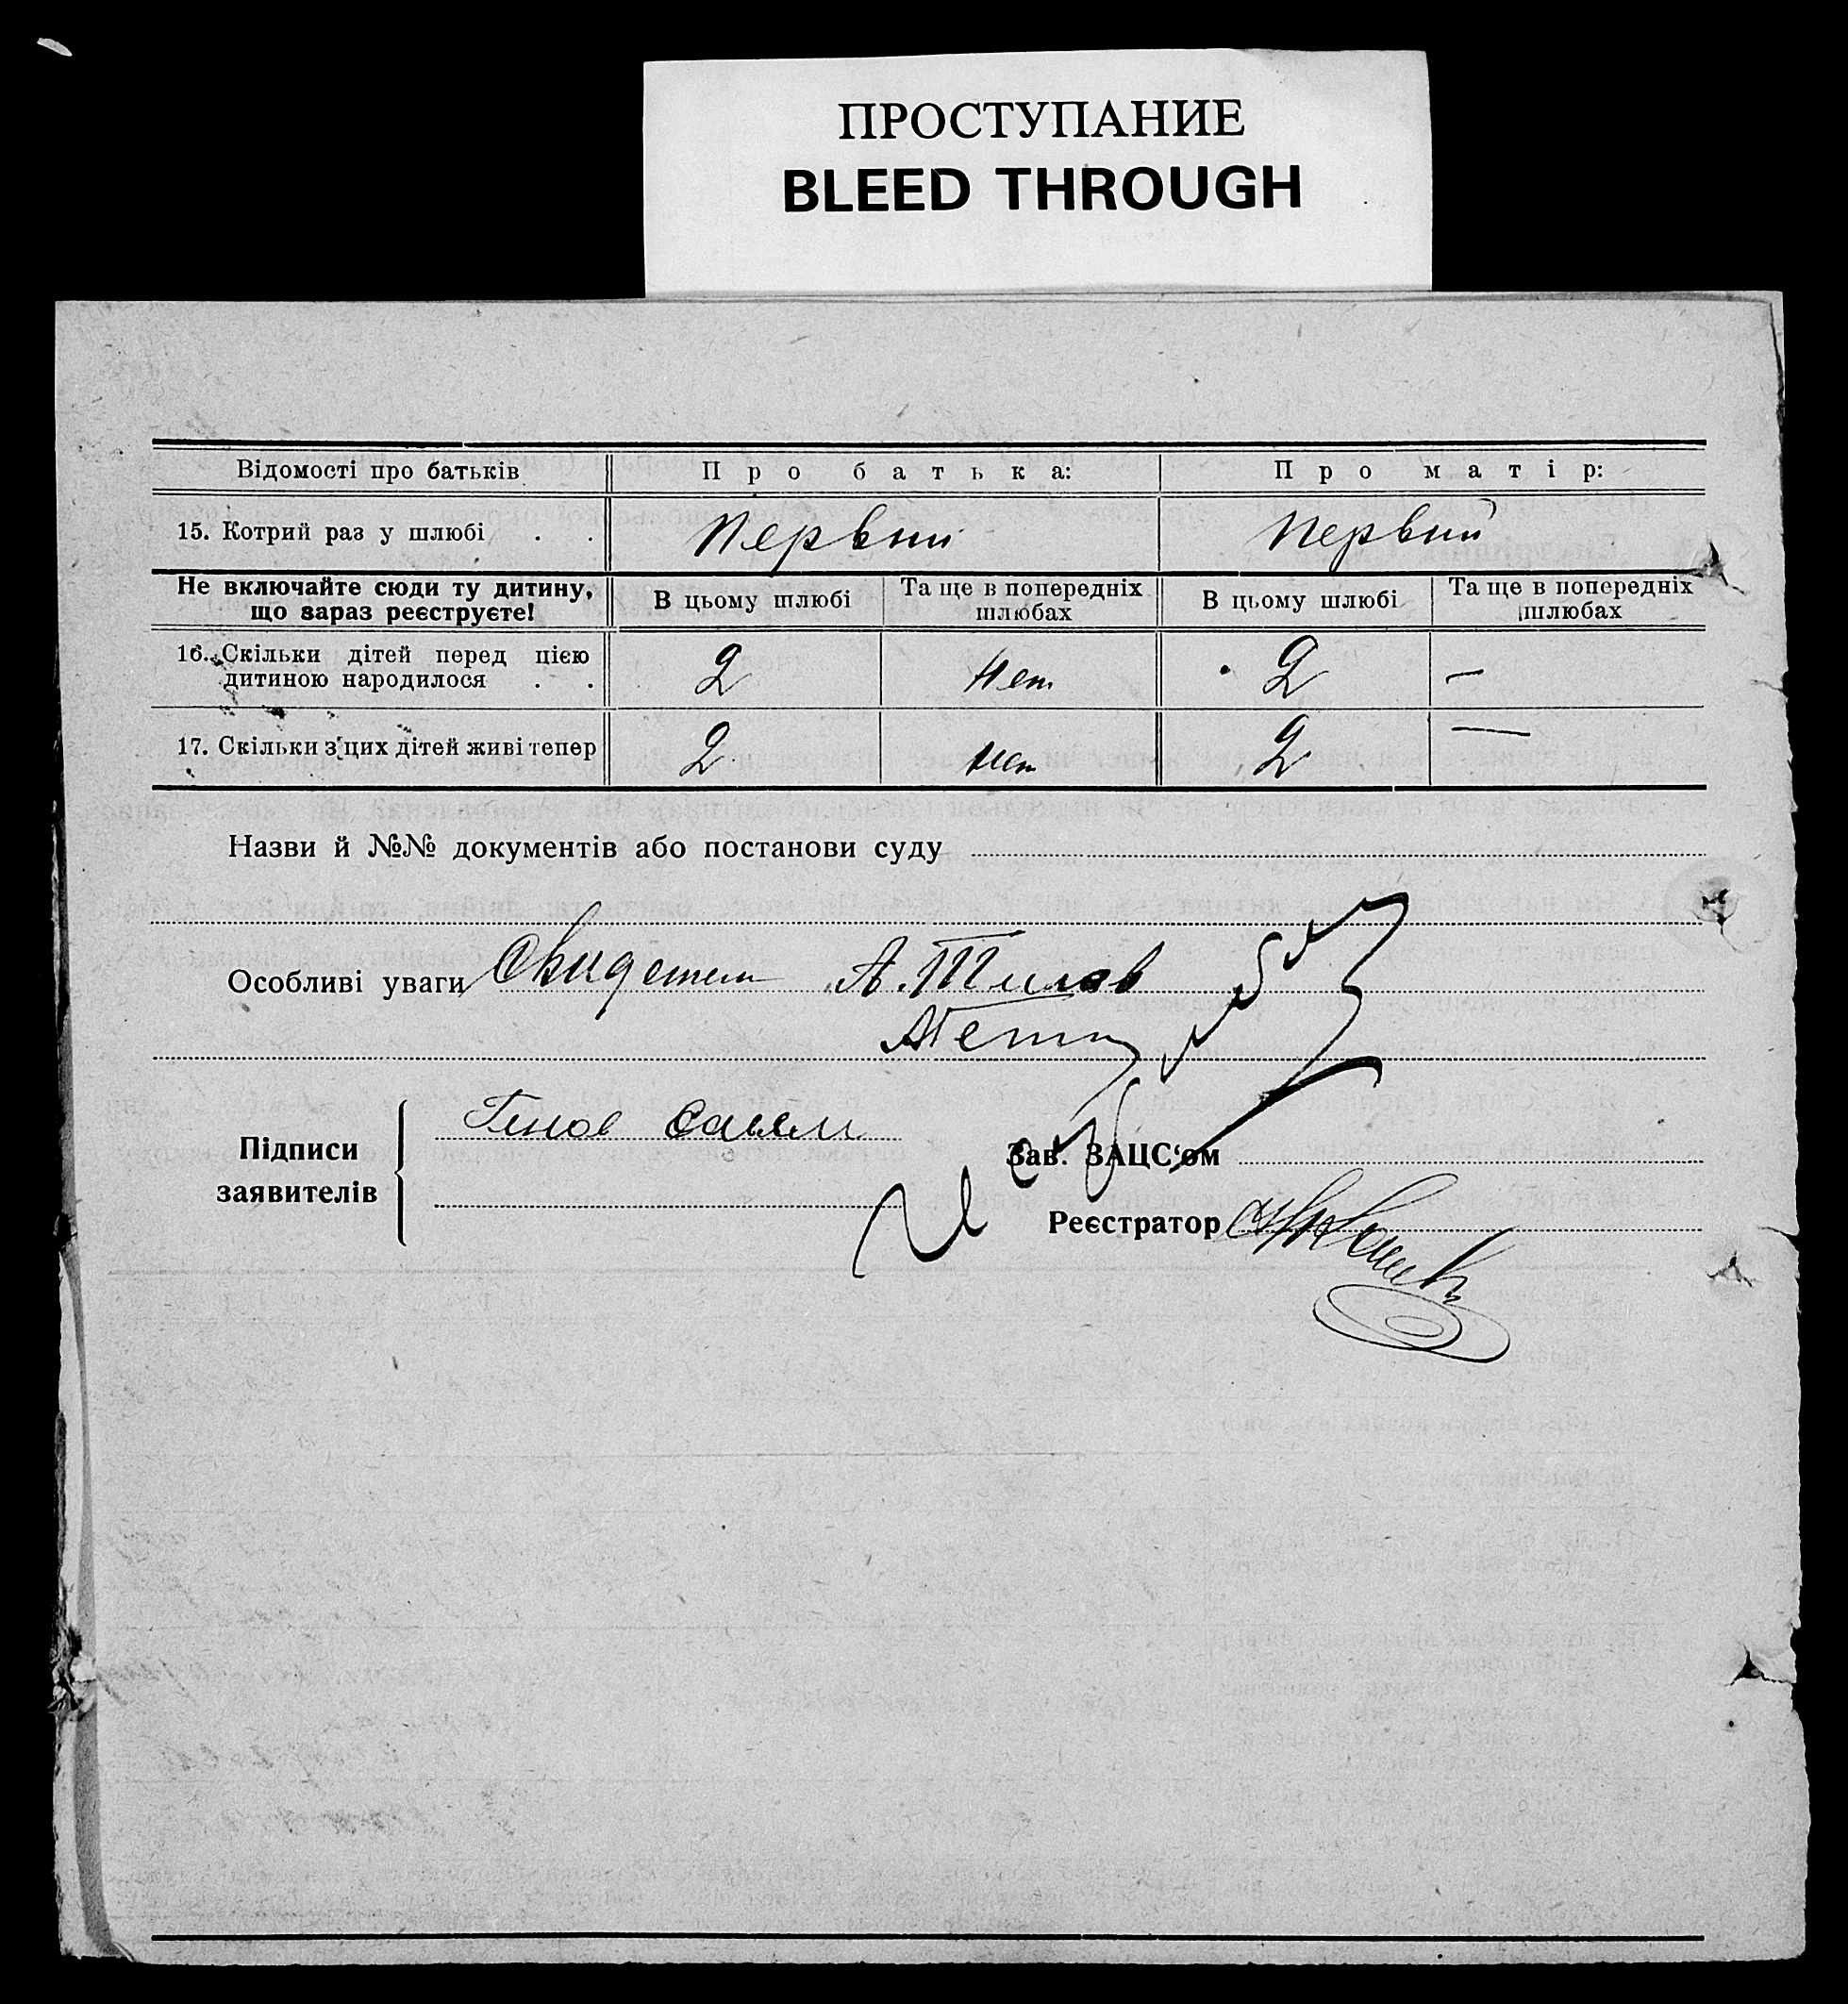 ПРОСТУПАНИЕ
BLEED THROUGH
Відомості про батьків Про батька: Про матір:
15. Котрий раз у шлюбі . . Первый Первый
Не включайте сюди ту дитину, що зараз реєструєте! В цьому шлюбі Та ще в попередніх шлюбах В цьому шлюбі Та ще в попередніх шлюбах
16. Скільки дітей перед цією
дитиною народилося . . 2 Нет 2 —
17. Скільки з цих дітей живі тепер 2 Нет 2 —
Назви й №№ документів або постанови суду
Особливі уваги Свидетели А.
Підписи
заявителів
Зав. ЗАЦС‘ом
Реєстратор